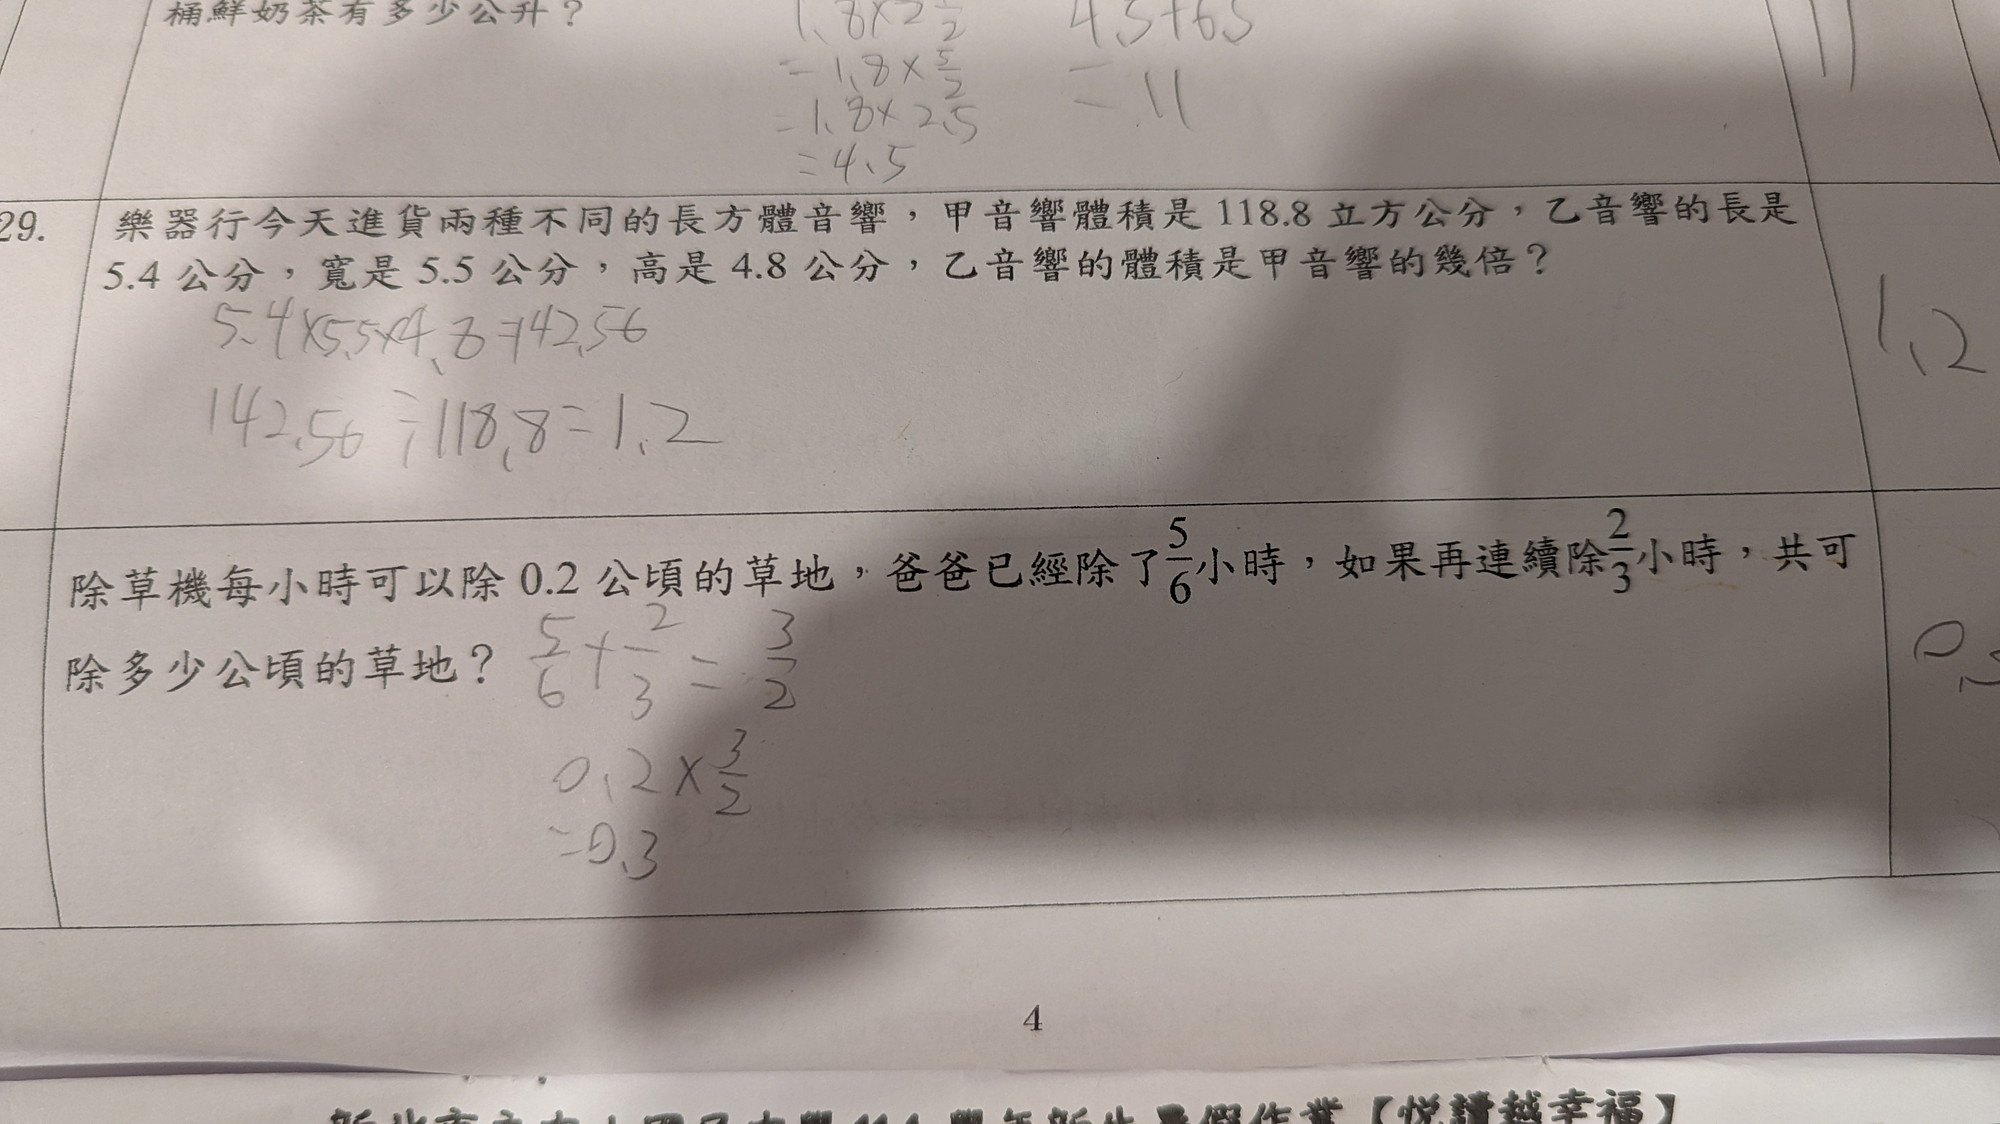 桶鮮奶茶有多少公升？
1.8×2 1/2
=1.8×5/2
=1.8×2.5
=4.5
4.5+6.5
=11
11
29.
樂器行今天進貨兩種不同的長方體音響，甲音響體積是 118.8 立方公分，乙音響的長是
5.4 公分，寬是 5.5 公分，高是 4.8 公分，乙音響的體積是甲音響的幾倍？
5.4×5.5×4.8=142.56
142.56÷118.8=1.2
1.2
除草機每小時可以除 0.2 公頃的草地，爸爸已經除了5/6小時，如果再連續除2/3小時，共可
除多少公頃的草地？
5/6+2/3=3/2
0.2×3/2
=0.3
4
學年新生暑假作業【悅讀越幸福】